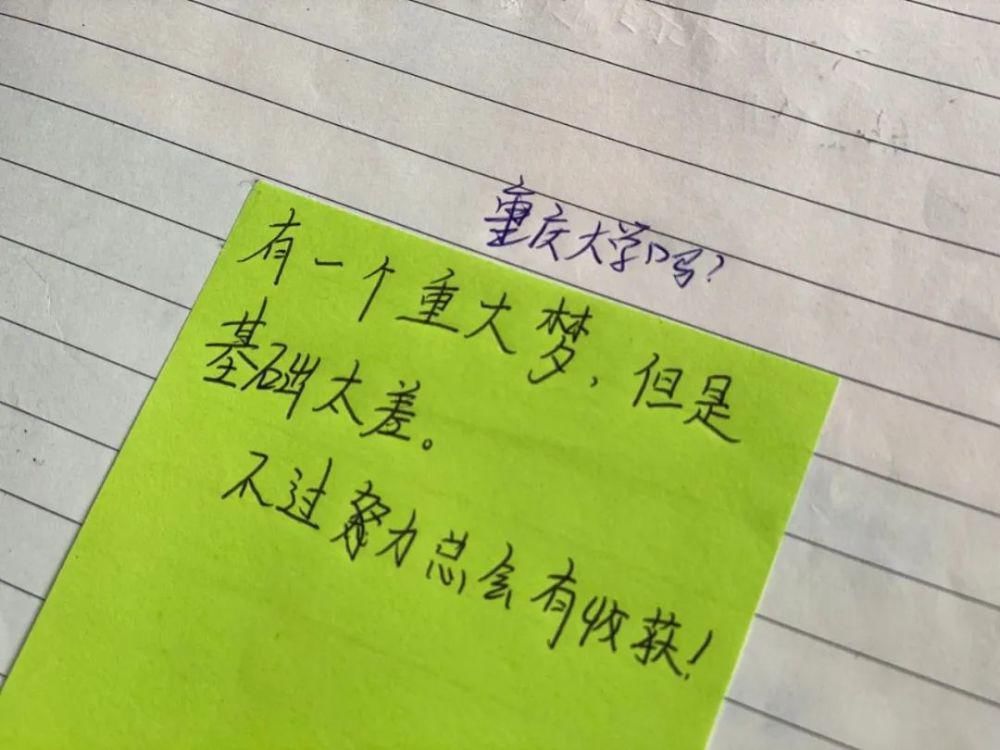 重庆大学吗?
有一个重大梦,但是
基础太差。
不过努力总会有收获!